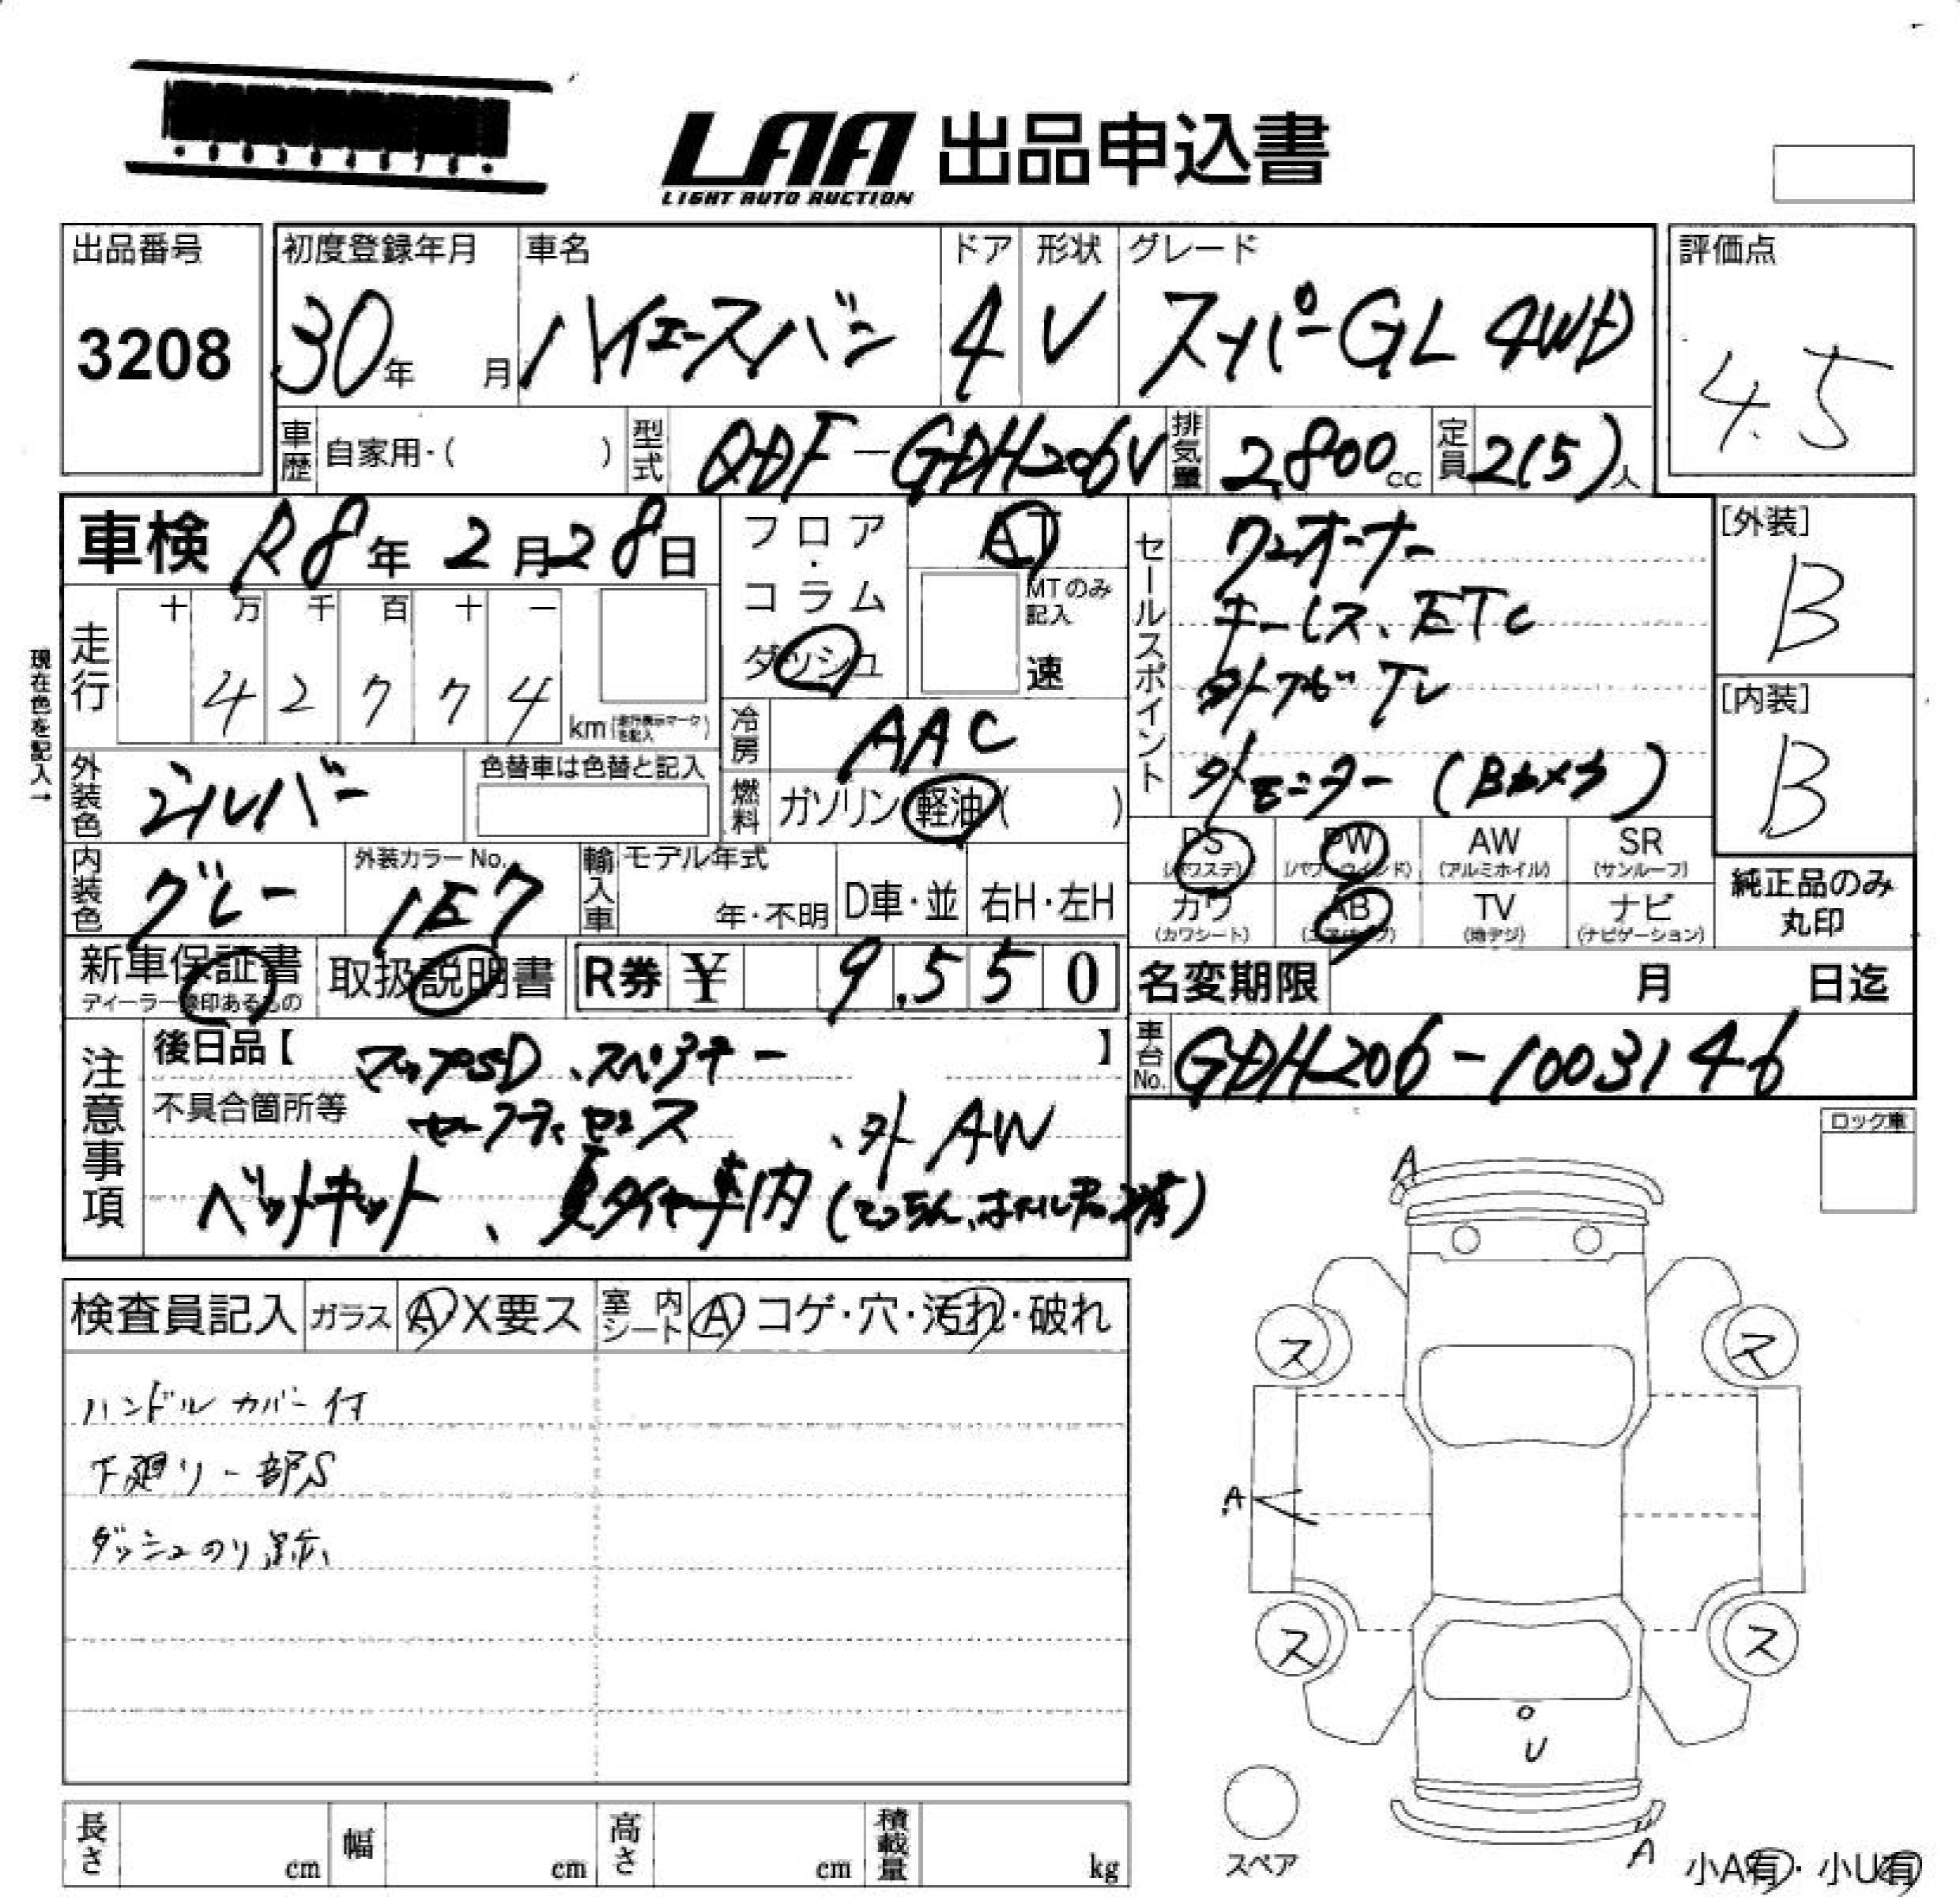 LAA 出品申込書
LIGHT AUTO AUCTION
出品番号
3208
初度登録年月
30年 月
車名
ハイエースバン
ドア
4
形状
V
グレード
スーパーGL 4WD
評価点
4.5
車歴 自家用・( )
型式 QDF-GDH206V
排気量 2,800cc
定員 2(5)人
車検 R8年2月28日
フロア・コラム
ダッシュ
AT
MTのみ記入
速
セールスポイント
ワンオーナー
キーレス、ETC
外ナビ TV
外モニター (Bカメラ)
[外装]
B
[内装]
B
現在色を記入→
走行
十 万 千 百 十 一
4 2 7 7 4
km
冷房 AAC
外装色 シルバー
色替車は色替と記入
燃料 ガソリン 軽油 ( )
PS (パワステ)
PW (パワーウインド)
AW (アルミホイル)
SR (サンルーフ)
カワ (カワシート)
AB (エアバッグ)
TV (地デジ)
ナビ (ナビゲーション)
純正品のみ
丸印
内装色 グレー
外装カラーNo. 1E7
輸入車 モデル年式
年・不明
D車・並
右H・左H
新車保証書
取扱説明書
R券 ¥ 9,550
名変期限 月 日迄
車台No. GDH206-1003146
注意事項
後日品【 マップSD、スペアキー 】
不具合箇所等 セーフティセンス 、外AW
ベットキット、夏タイヤ車内
検査員記入 ガラス A X要ス
室内シート A コゲ・穴・汚れ・破れ
ハンドルカバー付
下廻り一部S
ダッシュのり跡
ロック車
A
ス ス
A
ス ス
U
A
スペア
小A有・小U有
長さ cm
幅 cm
高さ cm
積載量 kg